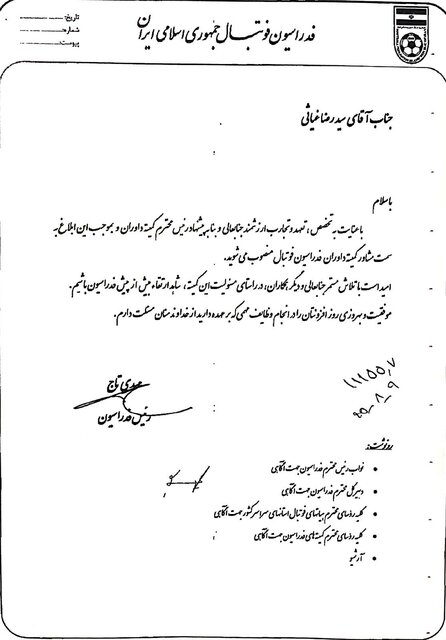 فدراسیون فوتبال جمهوری اسلامی ایران
تاریخ:
شماره:
پیوست:
جناب آقای سید رضا غیاثی
باسلام
با عنایت به تخصص، تعهد و تجارب ارزشمند جنابعالی و بنا به پیشنهاد رئیس محترم کمیته داوران و بموجب این ابلاغ به
سمت مشاور کمیته داوران فدراسیون فوتبال منصوب می شوید.
امید است با تلاش مستمر جنابعالی و دیگر همکاران، در راستای مسئولیت این کمیته، شاهد ارتقاء بیش از پیش فدراسیون باشیم.
موفقیت و بهروزی روز افزونتان را در انجام وظایف مهمی که بر عهده دارید از خداوند منان مسئلت دارم.
مهدی تاج
رئیس فدراسیون
رونوشت:
• نواب رئیس محترم فدراسیون جهت آگاهی
• دبیر کل محترم فدراسیون جهت آگاهی
• کلیه روسای محترم هیاتهای فوتبال استانهای سراسر کشور جهت آگاهی
• کلیه روسای محترم کمیته های فدراسیون جهت آگاهی
• آرشیو